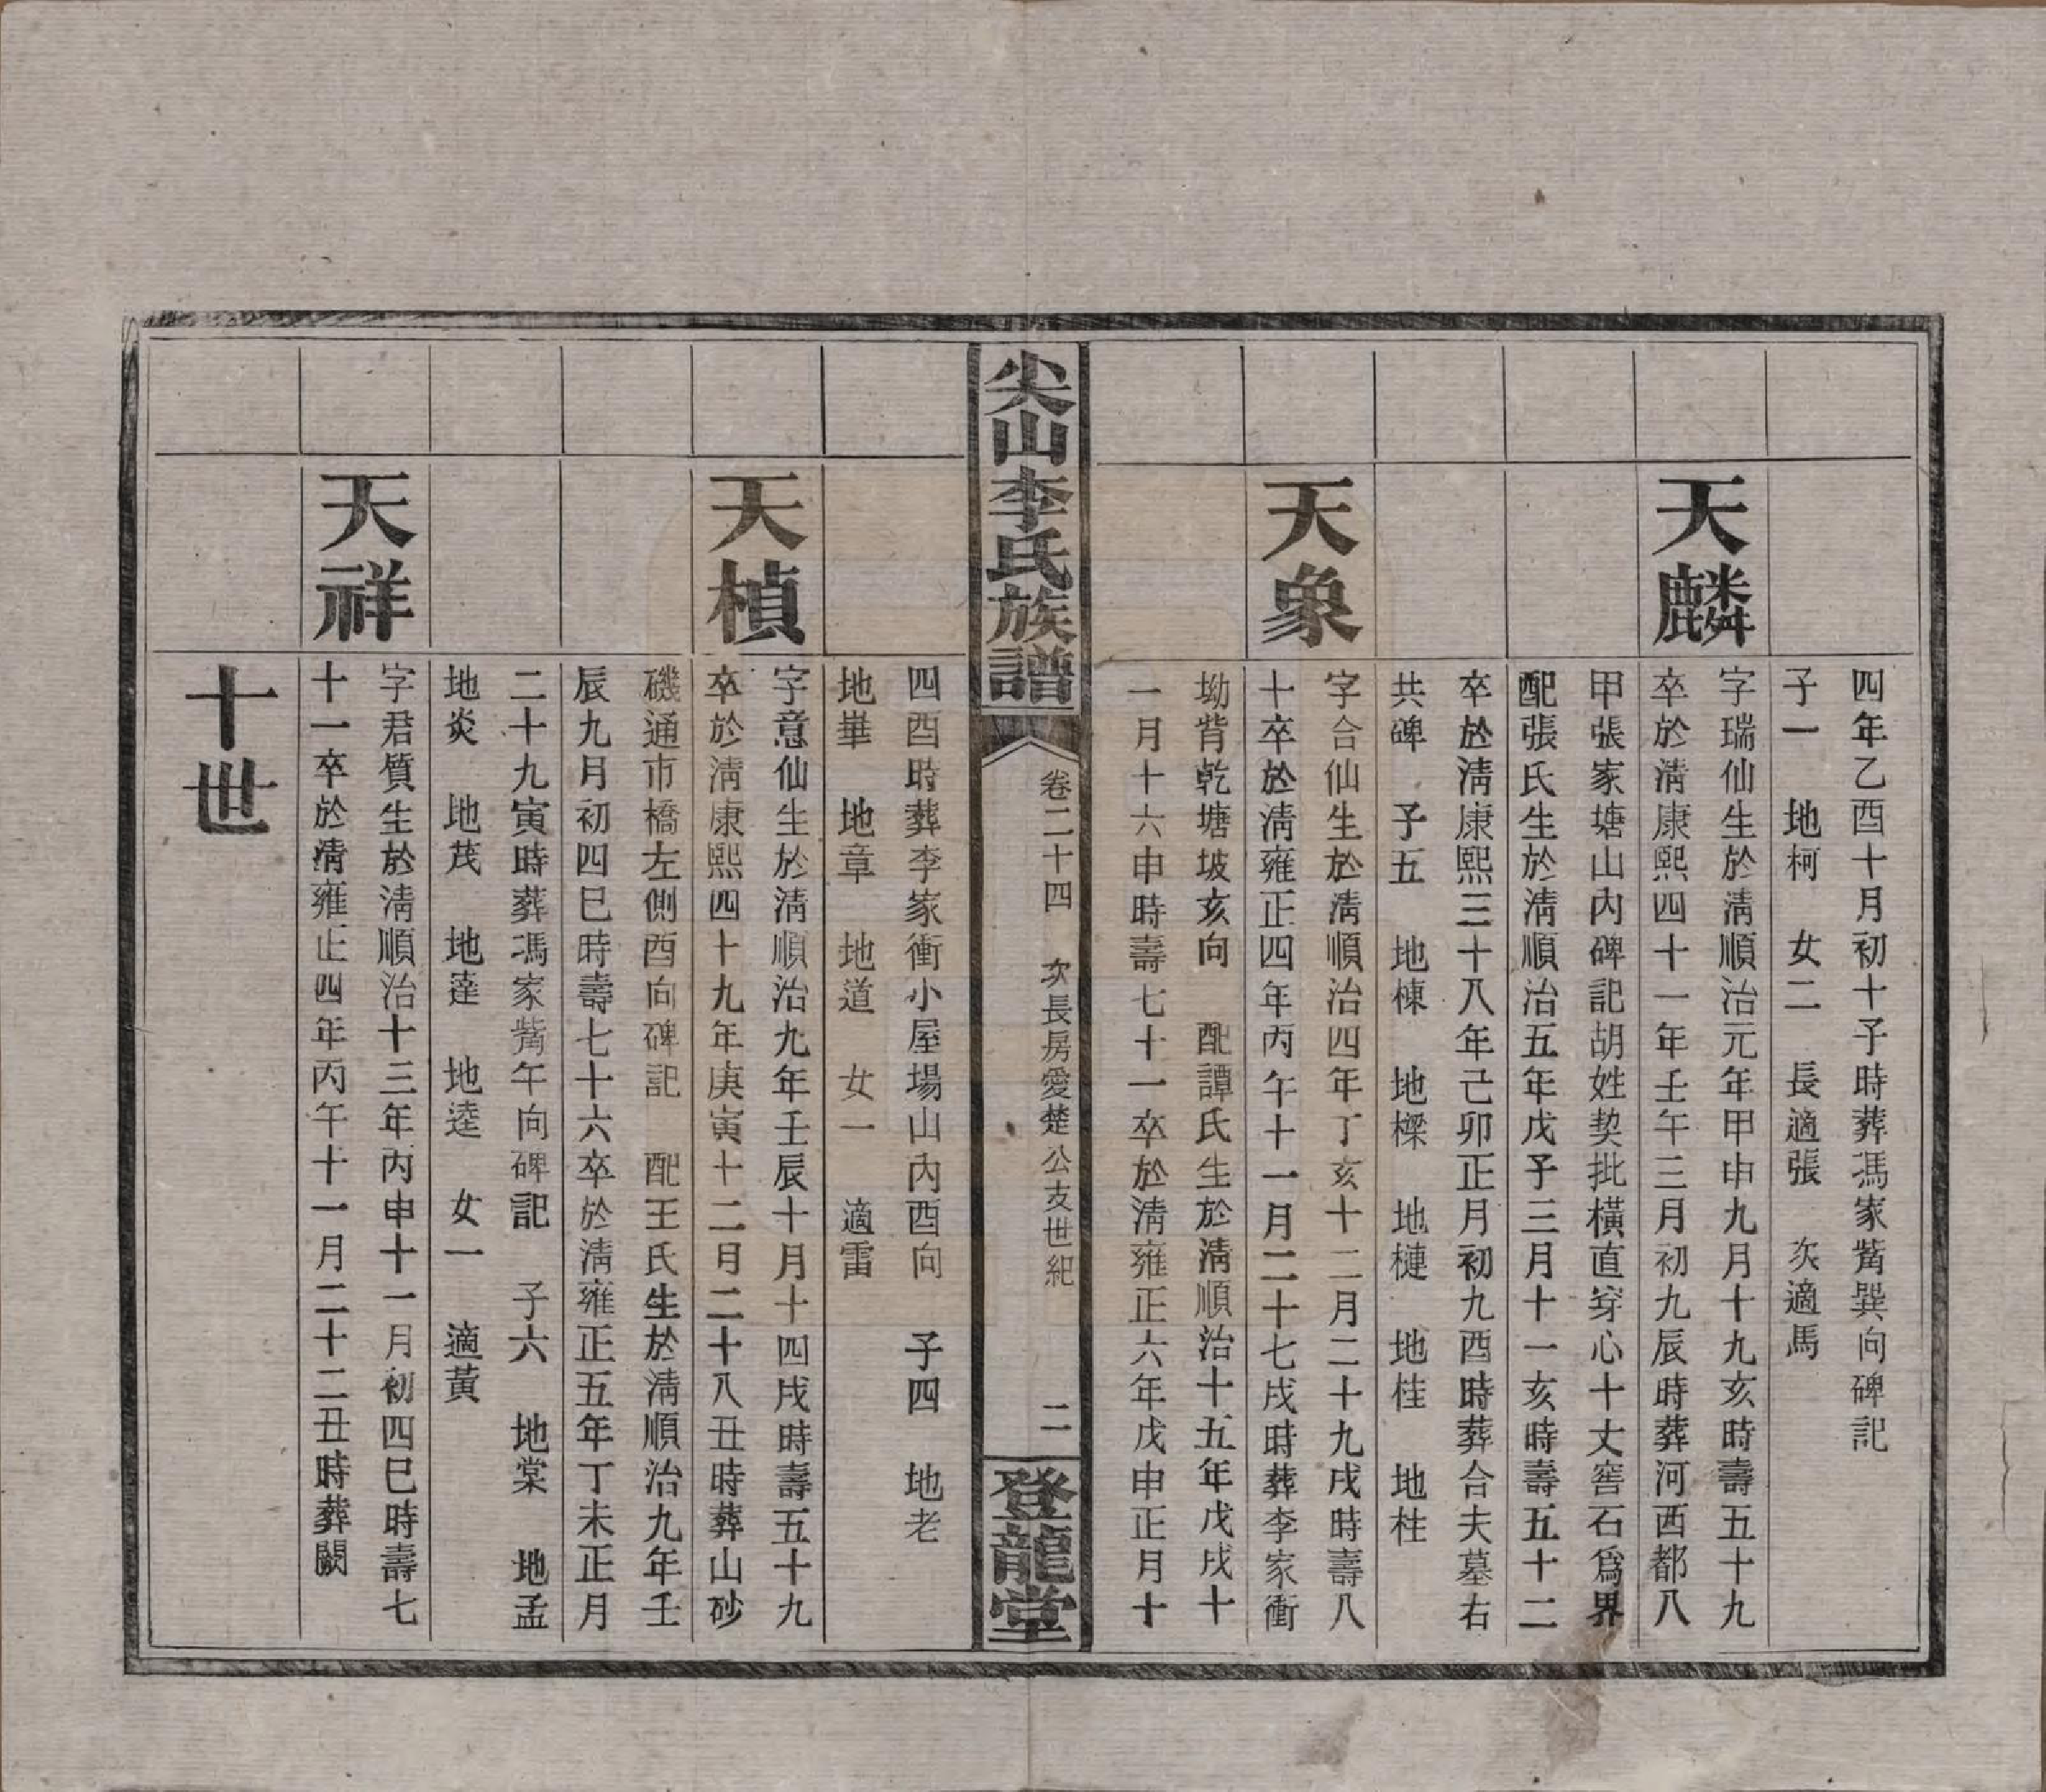 四年乙酉十月初十子時葬馮家觜巽向碑記
子一　地柯　女二　長適張　次適馬
天麟
字瑞仙生於淸順治元年甲申九月十九亥時壽五十九
卒於淸康熙四十一年壬午三月初九辰時葬河西都八
甲張家塘山內碑記胡姓契批橫直穿心十丈窖石爲界
配張氏生於淸順治五年戊子三月十一亥時壽五十二
卒於淸康熙三十八年己卯正月初九酉時葬合夫墓右
共碑　子五　地棟　地樑　地槤　地桂　地柱
天象
字合仙生於淸順治四年丁亥十二月二十九戌時壽八
十卒於淸雍正四年丙午十一月二十七戌時葬李家衝
坳背乾塘坡亥向　配譚氏生於淸順治十五年戊戌十
一月十六申時壽七十一卒於淸雍正六年戊申正月十
尖山李氏族譜
卷二十四　次長房愛楚公支世紀　二
登龍堂
四酉時葬李家衝小屋場山內酉向　子四　地老
地崋　地章　地道　女一　適雷
天楨
字意仙生於淸順治九年壬辰十月十四戌時壽五十九
卒於淸康熙四十九年庚寅十二月二十八丑時葬山砂
磯通市橋左側酉向碑記　配王氏生於淸順治九年壬
辰九月初四巳時壽七十六卒於淸雍正五年丁未正月
二十九寅時葬馮家觜午向碑記　子六　地棠　地孟
地炎　地茂　地薘　地逵　女一　適黃
天祥
字君質生於淸順治十三年丙申十一月初四巳時壽七
十一卒於淸雍正四年丙午十一月二十二丑時葬闕
十世